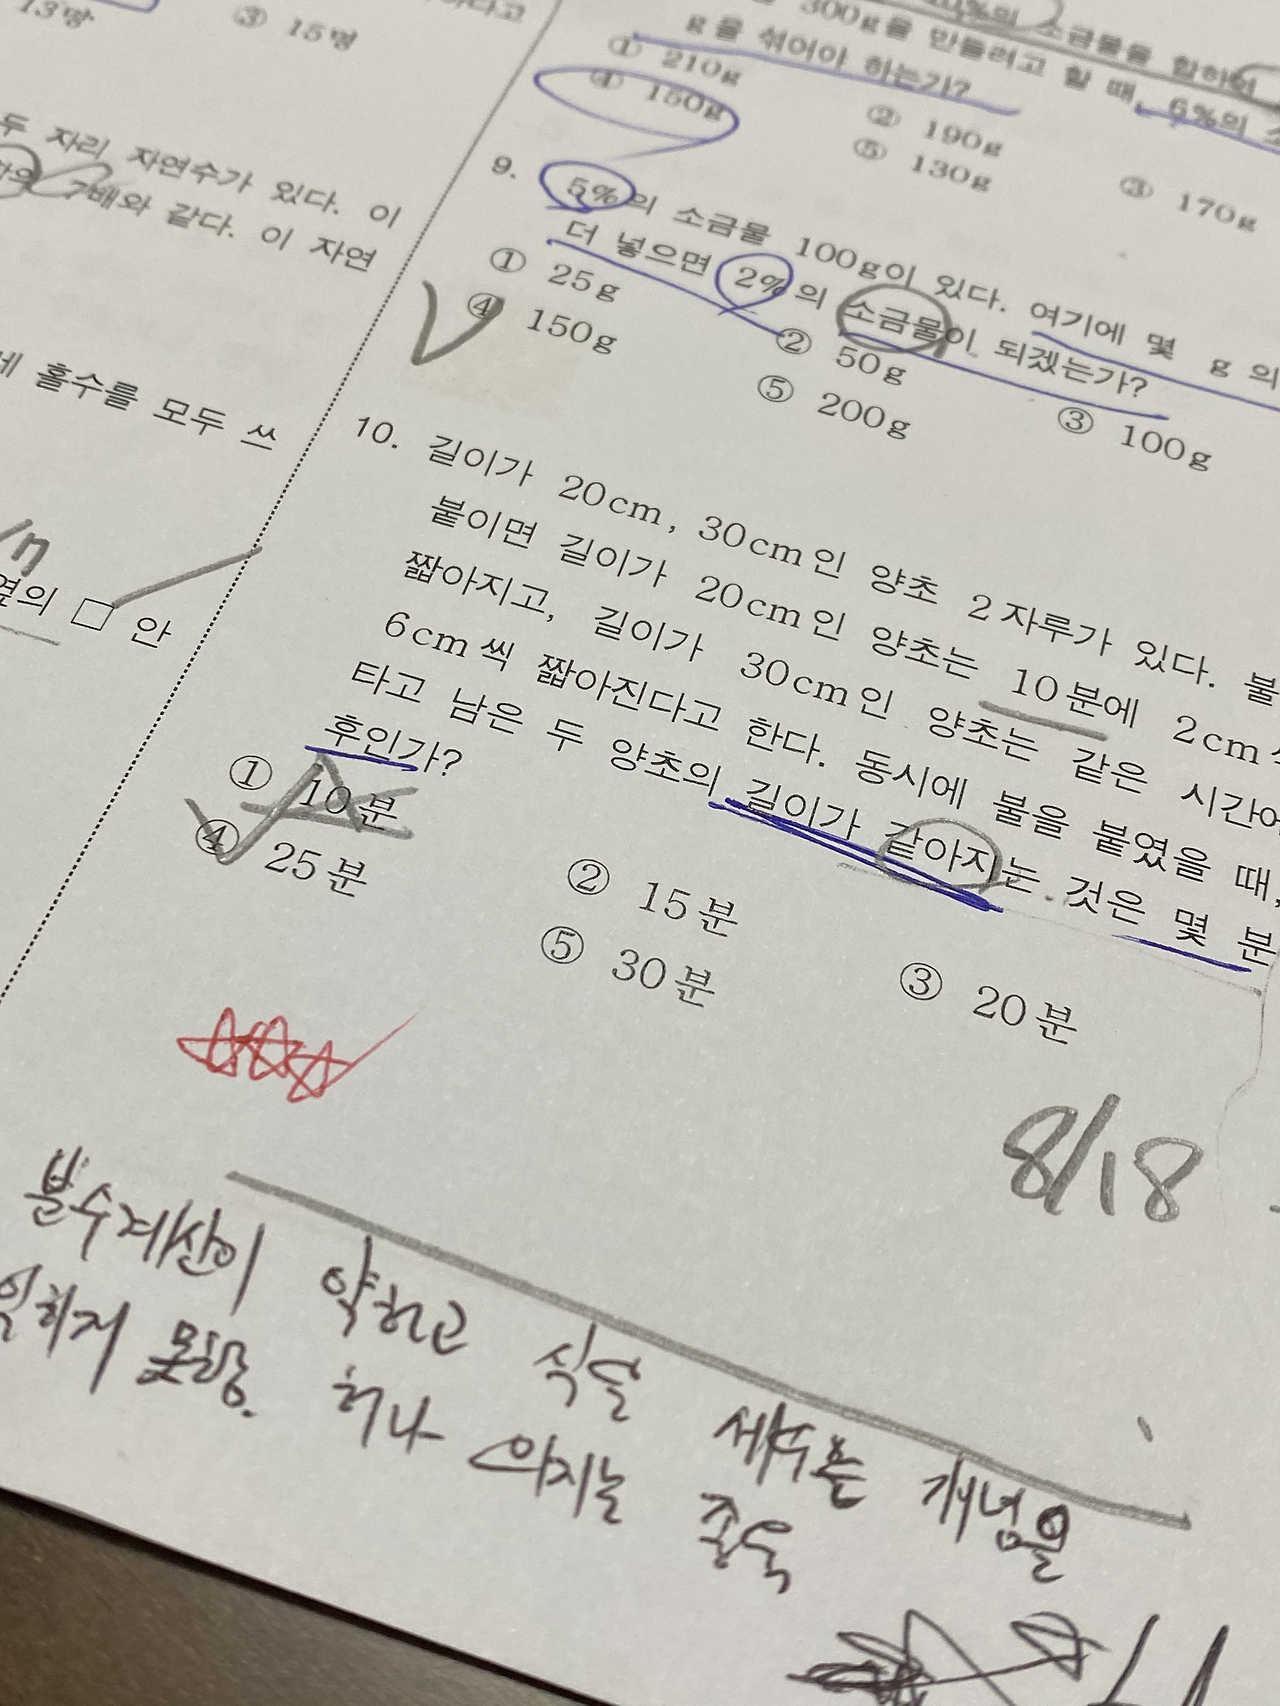 13명
③ 15명
하다고
두 자리 자연수가 있다. 이
7배와 같다. 이 자연
홀수를 모두 쓰
옆의 □ 안
소금물을 합하여
300g을 만들려고 할 때, 6%의
g을 섞어야 하는가?
① 210g
② 190g
③ 170g
④ 150g
⑤ 130g
9. 5%의 소금물 100g이 있다. 여기에 몇 g의
더 넣으면 2%의 소금물이 되겠는가?
① 25g
② 50g
③ 100g
④ 150g
⑤ 200g
10. 길이가 20cm, 30cm인 양초 2자루가 있다. 불
붙이면 길이가 20cm인 양초는 10분에 2cm
짧아지고, 길이가 30cm인 양초는 같은 시간에
6cm씩 짧아진다고 한다. 동시에 불을 붙였을 때,
타고 남은 두 양초의 길이가 같아지는 것은 몇 분
후인가?
① 10분
② 15분
③ 20분
④ 25분
⑤ 30분
8/18
분수계산이 약하고 식을 세우는 개념을
하지 못함. 허나 의지는